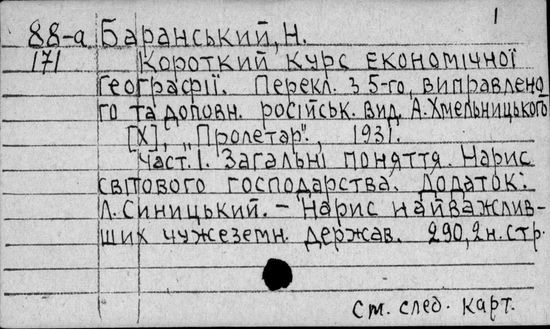 1
88-а Баранський, Н.
171 Короткий курс економічної
географії. Перекл. з 5-го, виправлено
го та доповн. російськ. вид. А. Хмельницького
[Х], „Пролетар“, 1931.
Част. 1. Загальні поняття. Нарис
світового господарства. Додаток:
Л. Синицький. – Нарис найважлив-
ших чужеземн. держав. 290, 2 н. стр.
См. след. карт.